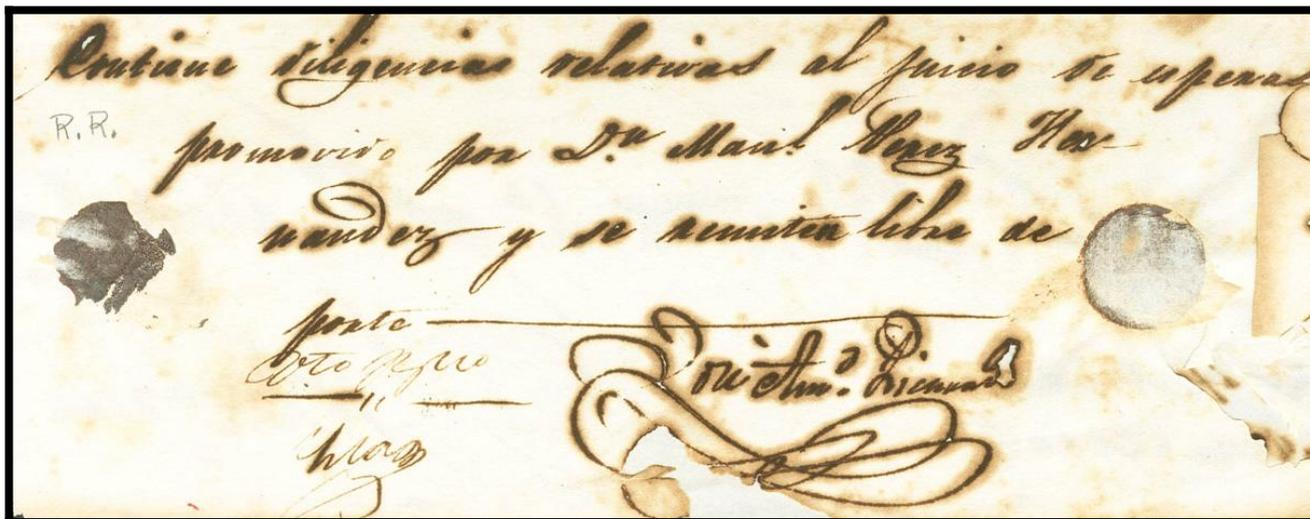 Contiene diligencias relativas al juicio de esperas
R.R.
promovido por Dn. Manl. Perez Her-
nandez y se remiten libre de
porte
José Anto.